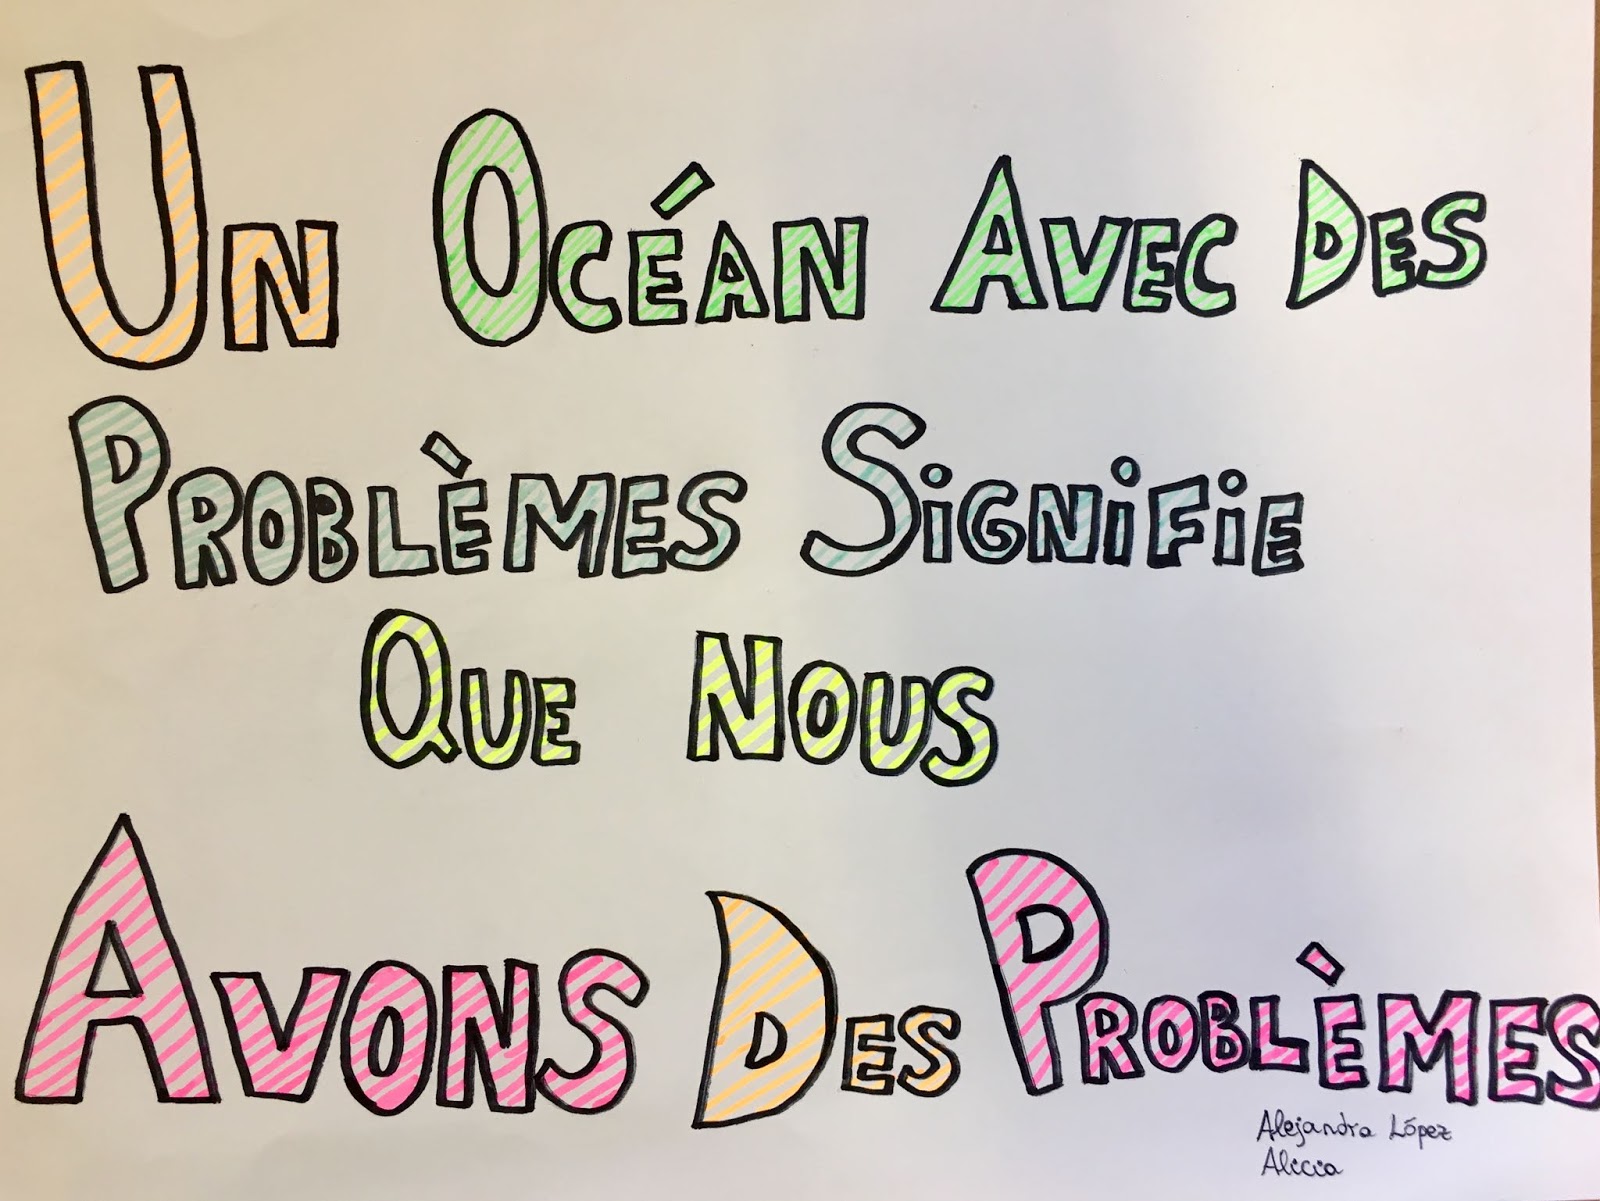 Un Océan Avec Des
Problèmes Signifie
Que Nous
Avons Des Problèmes
Alejandra López
Alicia